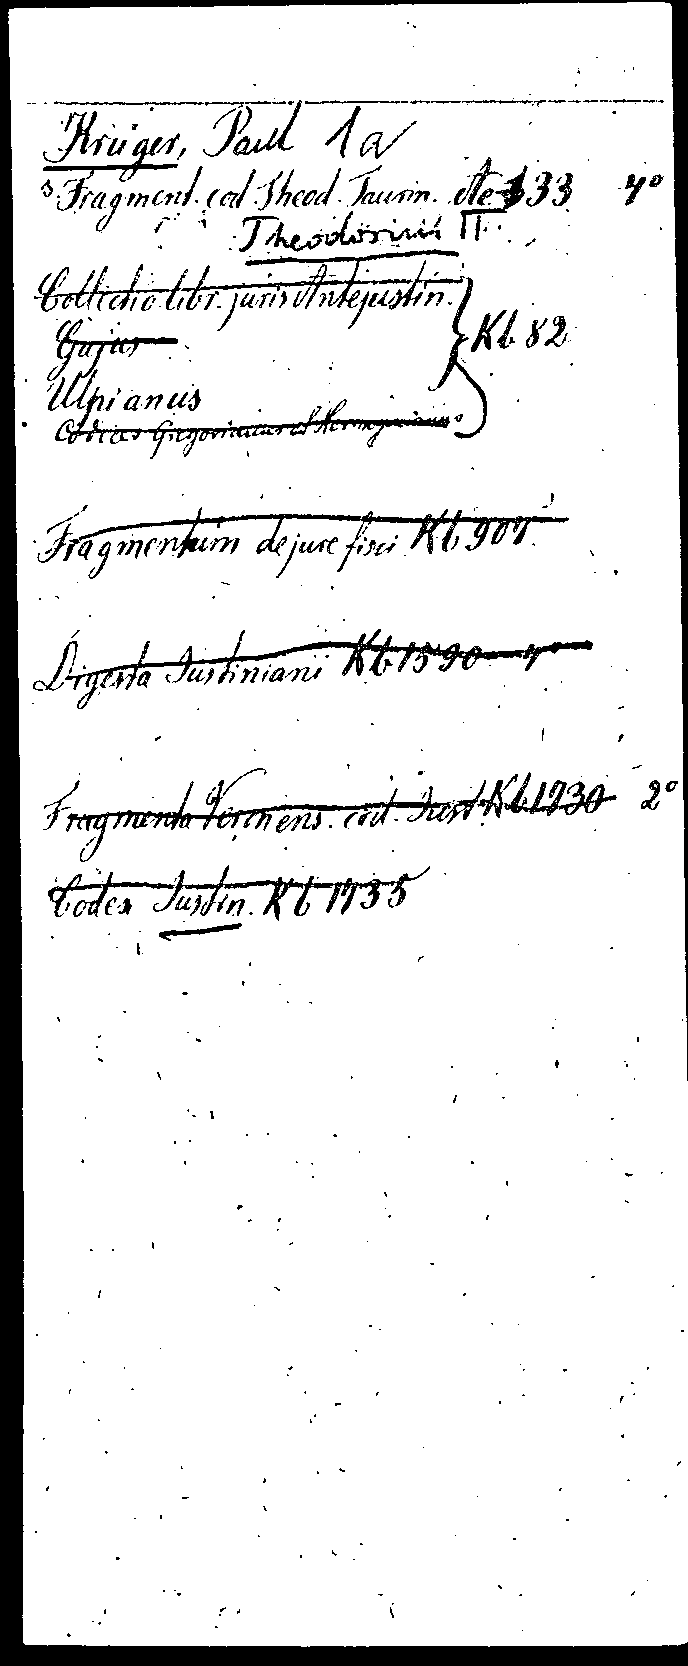 Krüger, Paul 1a
s Fragment. cod Theod. Taurin. 33 4°
Theodosius II.
Collectio libr. juris Antejustin.
Gajus
Kb 82
Ulpianus
Codices Gregorianus et Hermogenianus
Fragmentum de jure fisci Kb 907
Digesta Justiniani Kb 1590 4°
Fragmenta Veronens. cod. Just. Kb 1730 2°
Codex Justin. Kb 1735